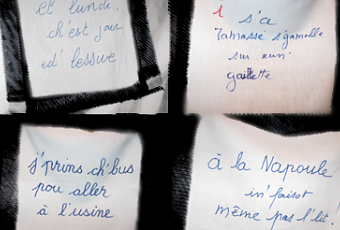 et lundi,
ch'est jour
ed' lessive
I s'a
ramassé s'gamelle
sur eun'
gaillette
j'prins ch'bus
pou aller
à l'usine
à la Napoule
in' faisot
même pas l'lit!